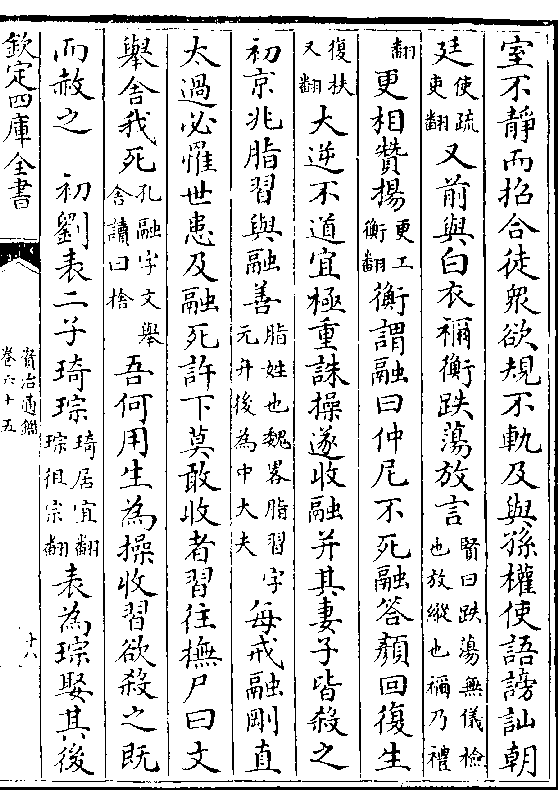 室不靜而招合徒衆欲規不軌及與孫權使語謗訕朝
廷使疏吏翻又前與白衣禰衡跌蕩放言賢曰跌蕩無儀檢也放縱也禰乃禮
翻更相贊揚更工衡翻衡謂融曰仲尼不死融答顔回復生
復扶又翻大逆不道宜極重誅操遂收融并其妻子皆殺之
初京兆脂習與融善脂姓也魏畧脂習字元升後為中大夫每戒融剛直
太過必罹世患及融死許下莫敢收者習往撫尸曰文
舉舍我死孔融字文舉舍讀曰捨吾何用生為操收習欲殺之既
而赦之 初劉表二子琦琮琦居宜翻琮徂宗翻表為琮娶其後
欽定四庫全書
資治通鑑
卷六十五
十八